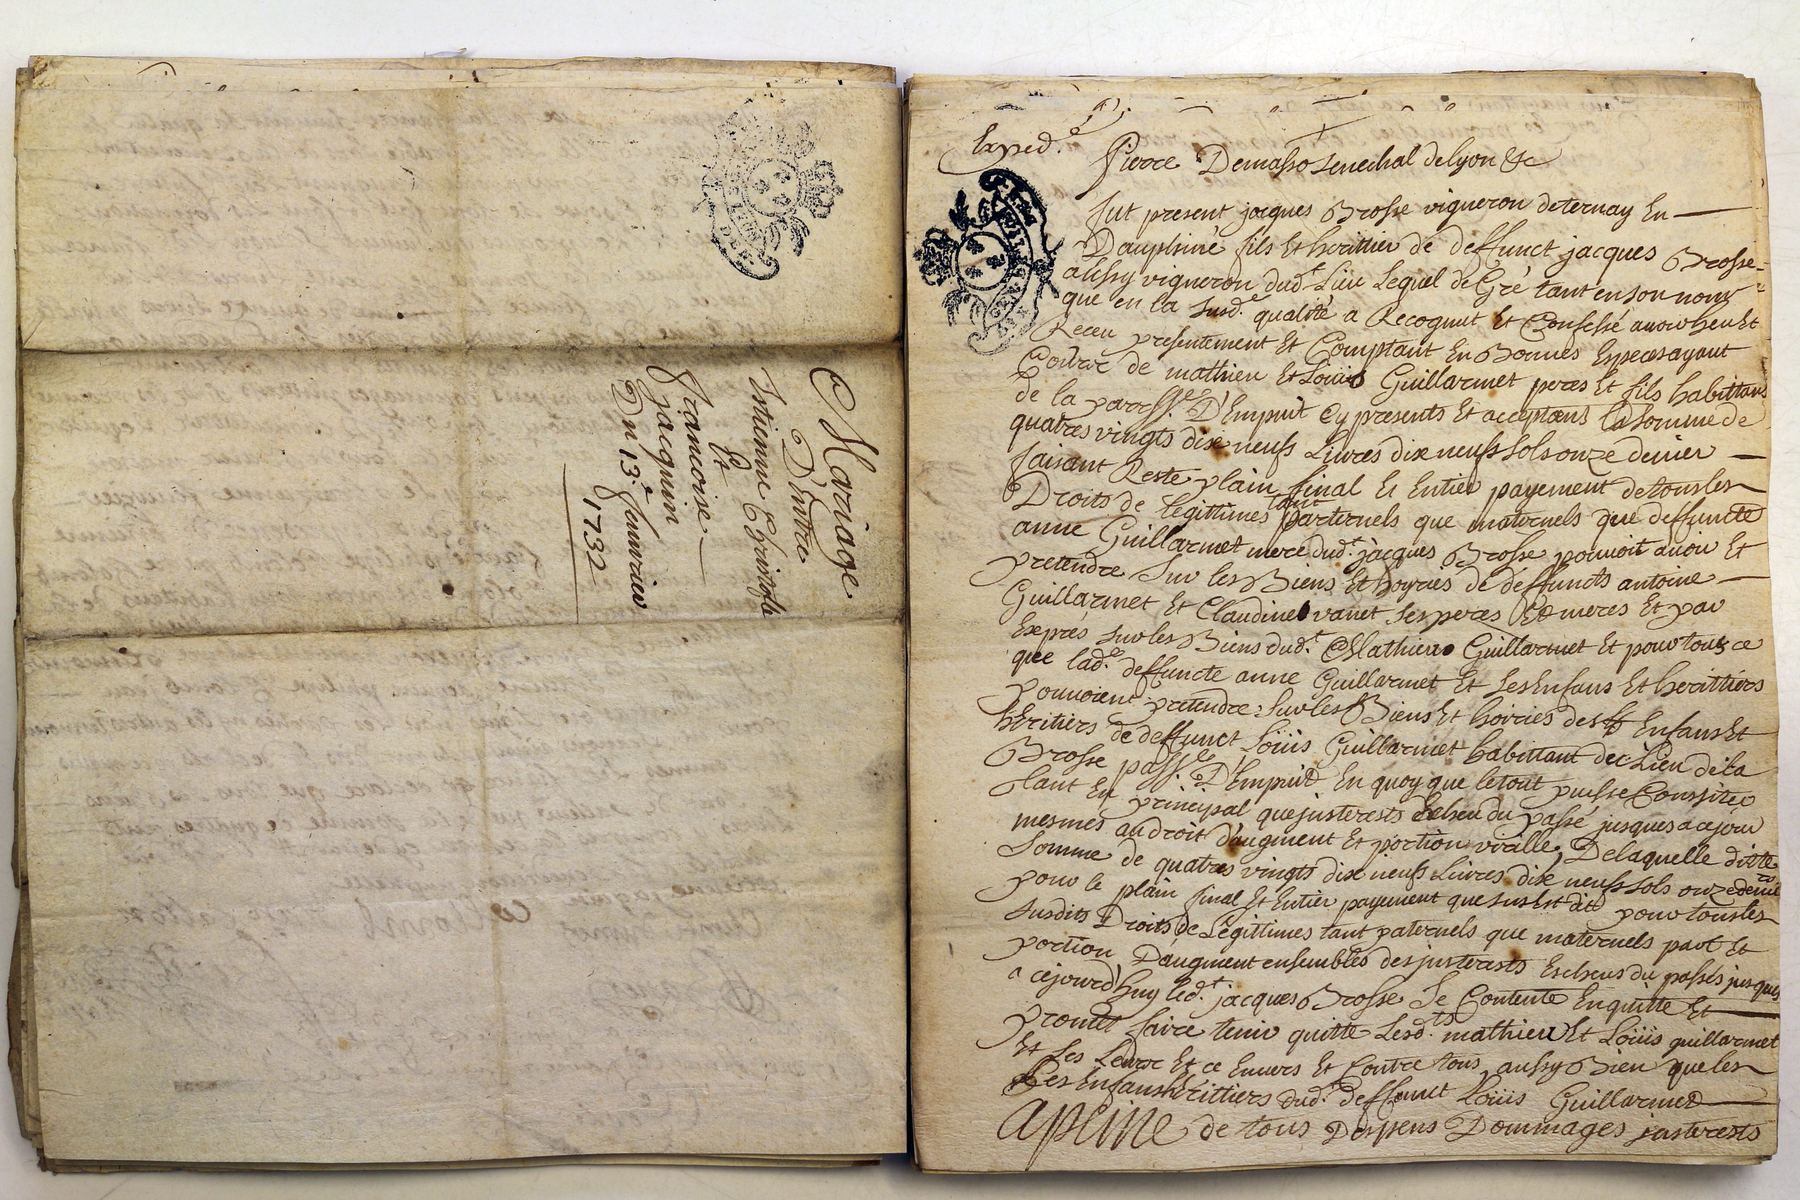 Mariage
D'Entre
Estienne Christofle
Et
Francoise
Jacquin
Du 13e Janvrier
1732
Exped.
Pierre Demasso senechal de lyon &c
fut present jacques Brosse vigneron de ternay En
Dauphiné fils Et herittier de deffunct jacques Brosse
aussy vigneron dud.t Lieu Lequel de Gré tant en son nom
que en la susd.e qualité a Recognut Et Confessé avoir heu Et
Receu presentement Et Comptant En Bonnes Especes ayant
Cours de mathieu Et Loüis Guillarmet peres Et fils habittans
de la paroisse D'Empuit Cy presents Et acceptans la somme de
quatres vingts dix neufs Livres dix neufs sols onze denier
faisant Reste plain final Et Entier payement de tous les
Droits de Légittimes tant parternels que maternels que deffuncte
anne Guillarmet mere dud.t jacques Brosse pouvoit avoir Et
pretendre sur les Biens Et hoyries de deffuncts antoine
Guillarmet Et Claudine vanet ses peres Et meres Et par
Exprés sur les Biens dud.t Mathieu Guillarmet Et pour tous ce
que lad.e deffuncte anne Guillarmet Et ses Enfans Et herittiers
pouvoient pretendre sur les Biens Et hoiries des Enfans Et
héritiers de deffunct Loüis Guillarmet habittant du Lieu de la
Brosse pass.e D'Empuit En quoy que le tout puisse Consister
tant En principal que justerests Escheu du passé jusques a ce jour
mesmes au droit d'augment Et portion virille, De laquelle ditte
somme de quatres vingts dix neufs Livres dix neufs sols onze deniers
pour le plain final Et Entier payement que sus Est dit pour tous les
susdits Droits de Légittimes tant paternels que maternels part Et
portion D'augment ensembles des justerests Escheus du passés jusques
a cejourd'huy led.t jacques Brosse se Contente En quitte Et
promet faire tenir quitte Lesd.ts mathieu Et Loüis guillarmet
Et Les Leurs Et ce Envers Et Contre tous aussy Bien que les
Les Enfans herittiers dud.t deffunct Loüis Guillarmet
apeine de tous Despens Dommages justerests